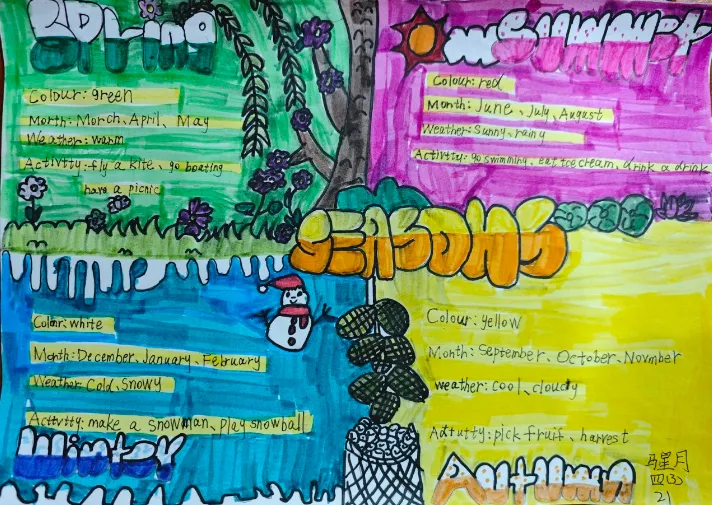 Spring
Colour: green
Morth: Morch、April、May
Weather: warm
Activtty: fly a kite、go boating
have a picnic
Summer
Colour: red
Month: June、July、August
Weather: Sunny、rainy
Activtty: go swimming、eat ice cream、drink a drink
SEASONS
Colour: white
Month: December、January、February
Weather: Cold、Snowy
Activtty: make a snowman、play snowball
Winter
Colour: yellow
Month: September、October、Novmber
weather: cool、cloudy
Adtutty: pick fruit、harvest
Autumn
星月
21